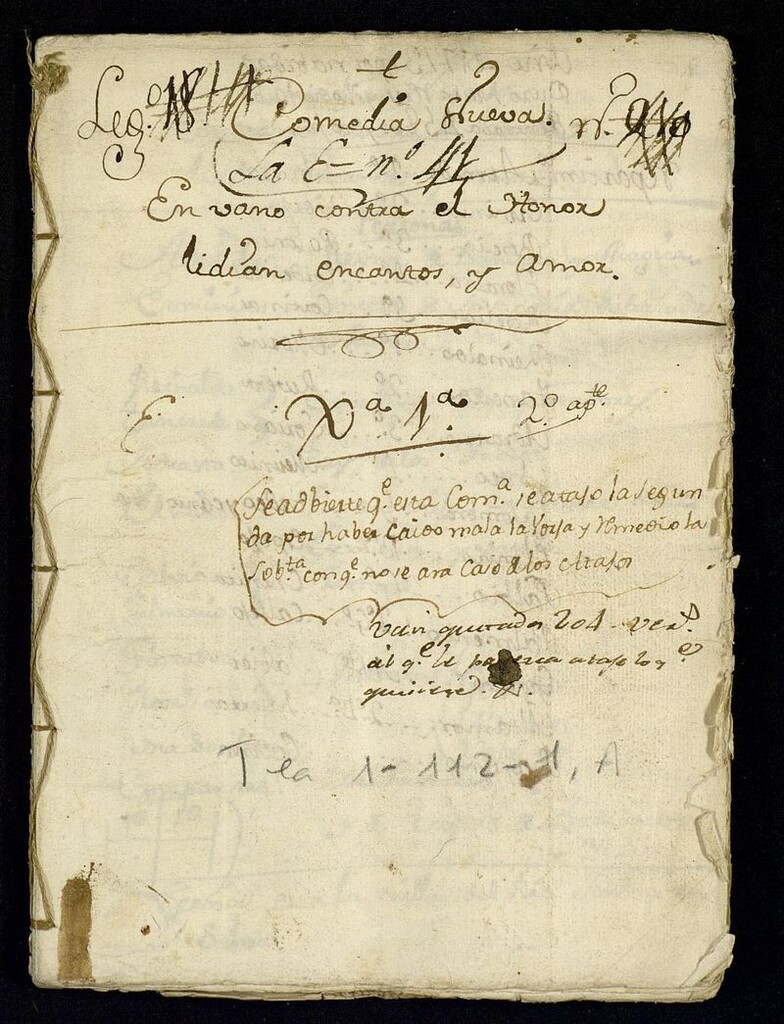 Leg.º
Comedia Nueva. N.º
La E= n.º 41
En vano contra el Honor
lidian encantos, y Amor.
E. Xª 1ª. 2º apte
Se adbierte q.e esta Com.ª se atajo la segun
da por haber caido mala la Borja y Remedio la
Sob.ta con q.e no se ara Caso de los Atajos
van quitados 204 ver.s
al q.e le parezca atajelos
quisiere.
Tea 1-112-11, A